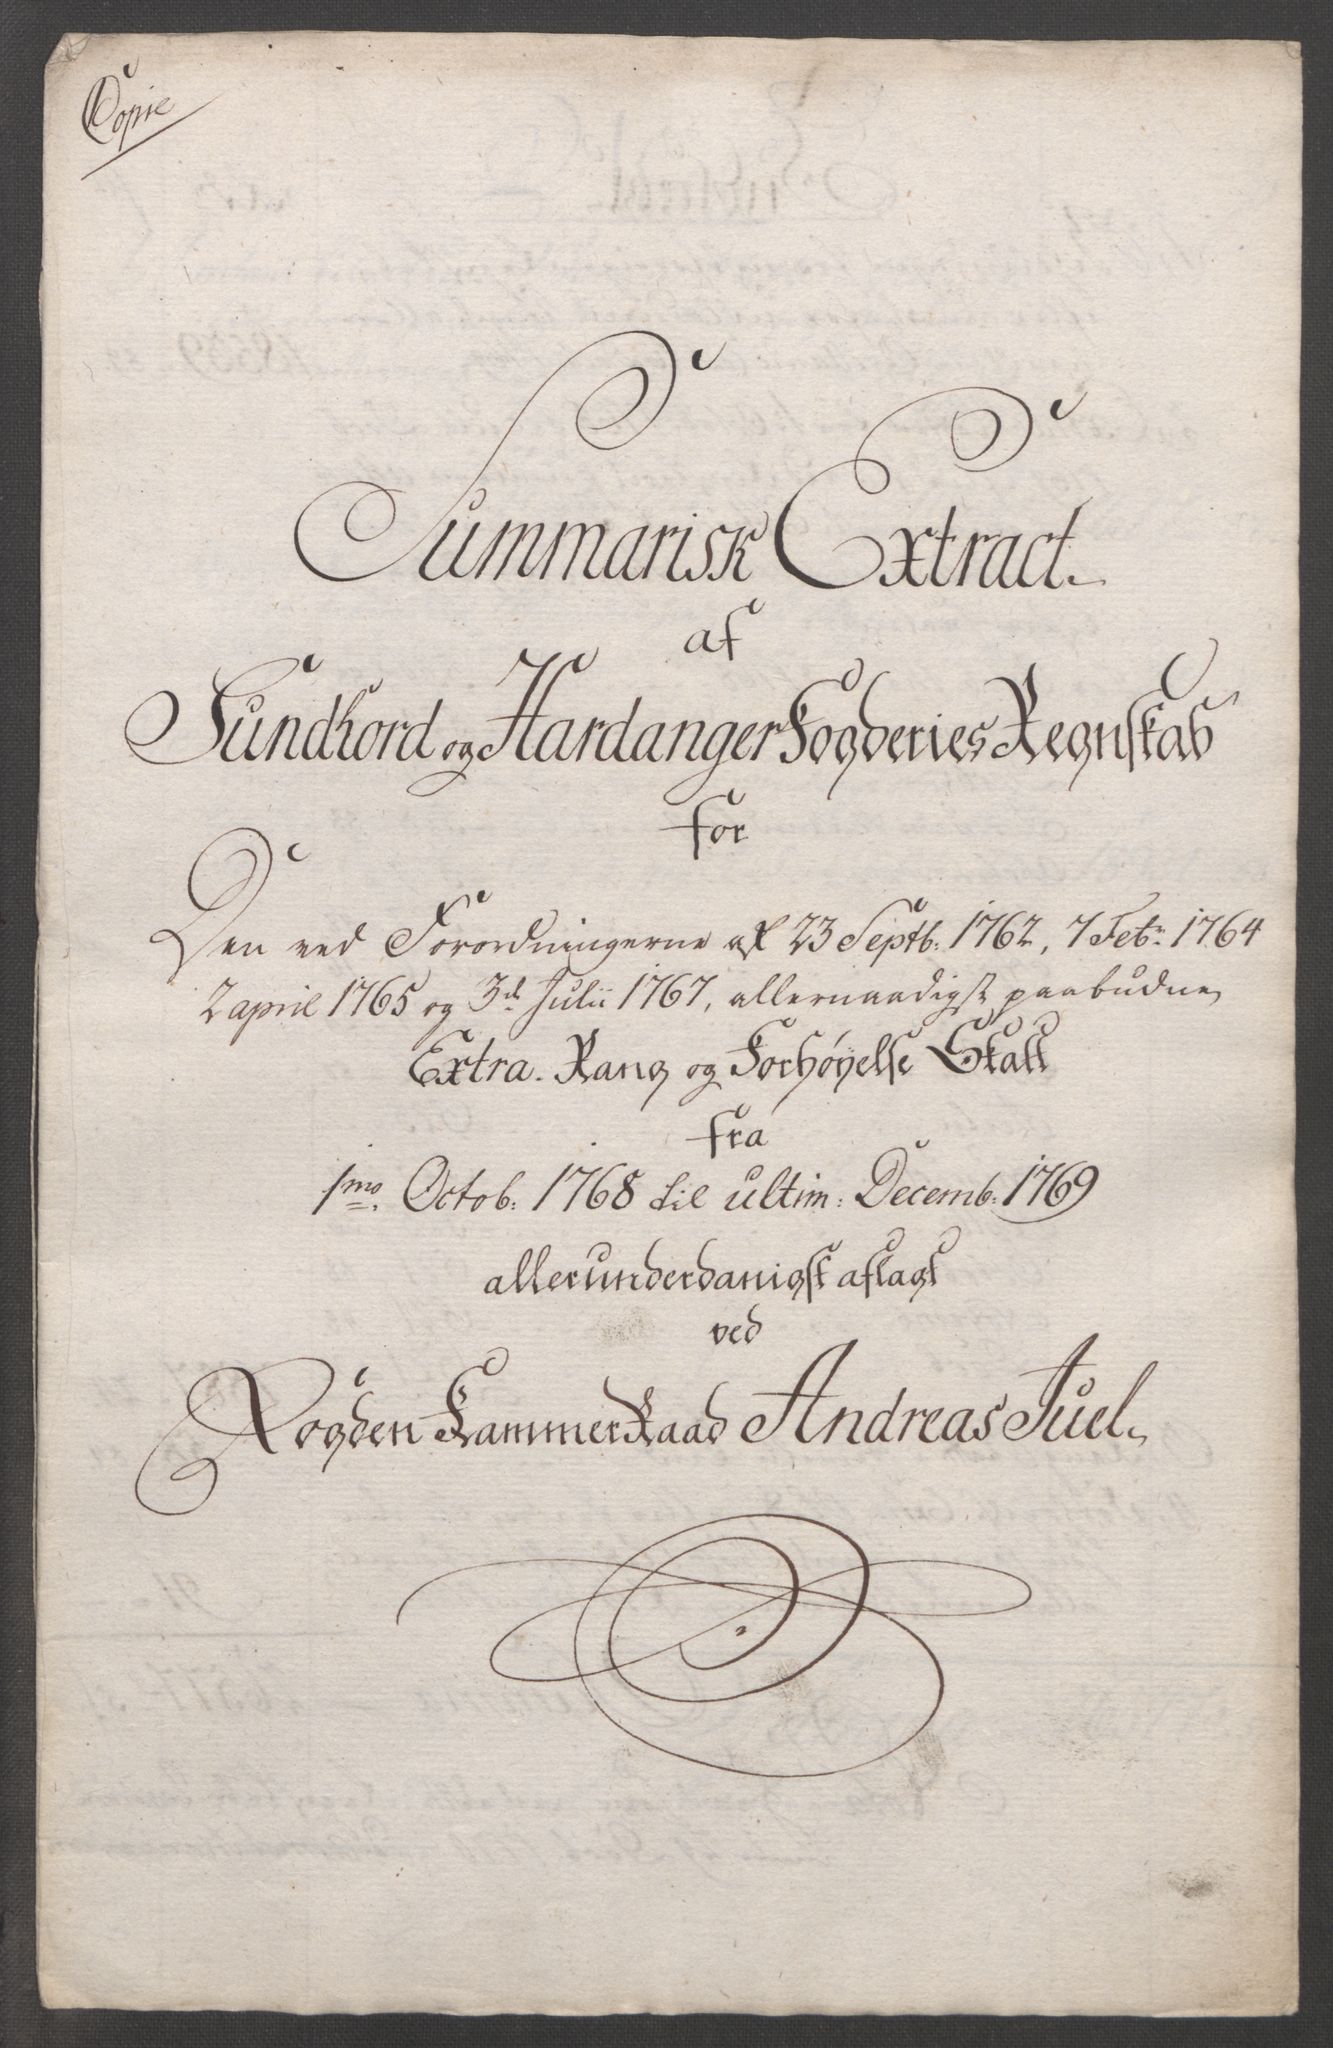 Copie
Summarisk Extract
af
Sundhord og Hardanger Fogderies Regnskab
for
Den ved Forordningerne af 23 Septb: 1762, 7 Febr: 1764
2 april 1765 og 3d Julii 1767, allernaadigst paabudne
Extra. Rang og Forhøyelse Skatt
fra
1mo. Octob: 1768 til ultim: Decemb: 1769
allerunderdanigst aflagt
ved
Fogden Kammer Raad Andreas Juel.